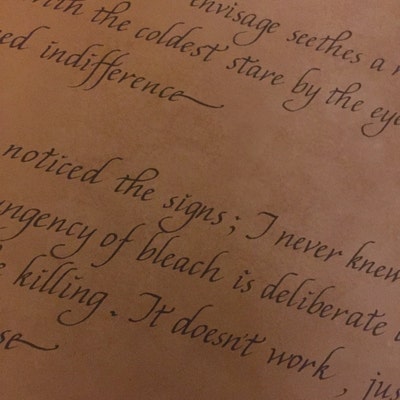 envisage seethes a
with the coldest stare by the eye
indifference
noticed the signs; I never knew
of bleach is deliberate
killing. It doesn't work, jus